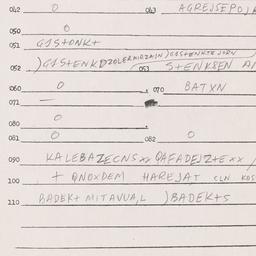 042 0 043 AGREJSEPOJA
050 0
051 GISTONK+
)GISTENKDZOLERMIDZAIN)GISTENKTEJORV
052 053 STENKSEN AN
060 0 070 BATXN
071 —
080 0
081 0 082 0
090 KALEBAZECNSxx QAFADEJZ+Exx /
100 + QNOXDEM HAREJAT CLN KOS
110 BADEK+ MITAVUA,L )BADEK+S